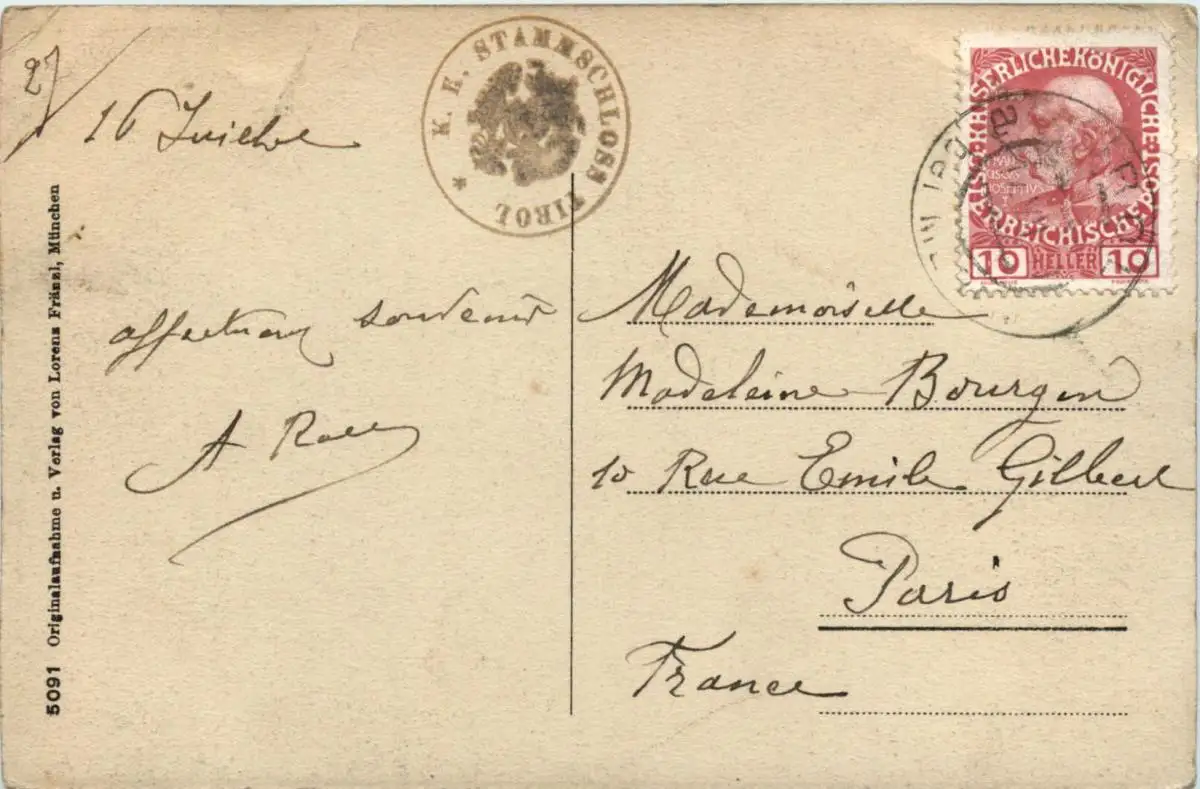 27
16 Juillet
K. K. STAMMSCHLOSS TIROL *
KAISERLICHE KÖNIGLICHE ÖSTERREICHISCHE POST
10 HELLER 10
affectueux souvenir
A
Mademoiselle
Madeleine Bourgin
10 Rue Emile Gilbert
Paris
France
5091 Originalaufnahme u. Verlag von Lorenz Fränzl, München